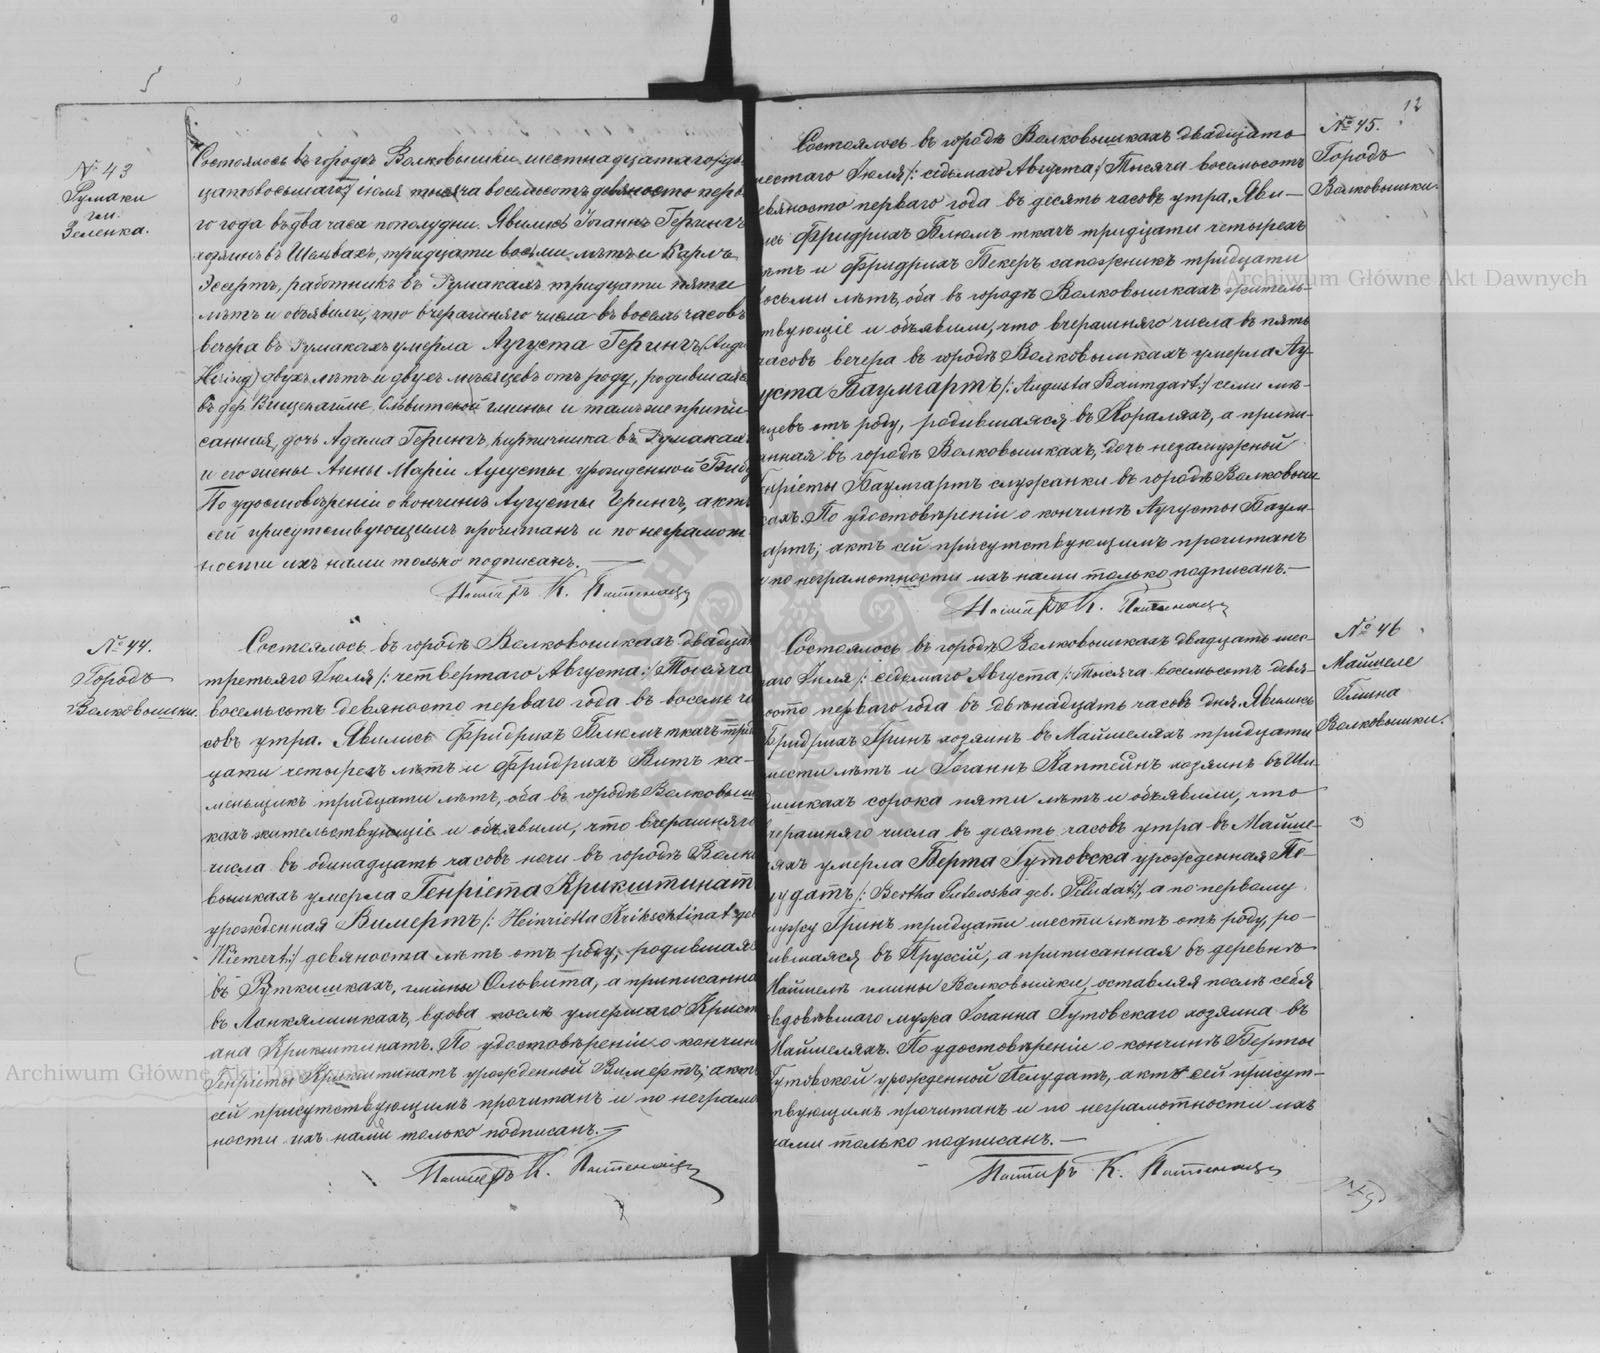 12
№ 43
Румаки
гм.
Зеленка.
Состоялось въ городѣ Волковышки шестнадцатаго
цать восьмаго іюля тысяча восемьсотъ девяносто перв
го года въ два часа пополудни. Явились Іоганъ Герингъ
хозяинъ въ Шельвахъ, тридцати восьми лѣтъ и Карлъ
Эсертъ, работникъ въ Румакахъ тридцати пяти
лѣтъ и объявили, что вчерашняго числа въ восемь часовъ
вечера въ Румакахъ умерла Аугуста Герингъ (Augu
Hering) двухъ лѣтъ и двухъ мѣсяцевъ отъ роду, родившаяс
въ дер. Ольвитской гмины и тамъ же припи
санная, дочь Адама Герингъ, кирпичника въ Румакахъ
и его жены Анны Маріи Аугусты урожденной
По удостовѣреніи о кончинѣ Аугусты Герингъ, актъ
сей присутствующимъ прочитанъ и по неграмот
ности ихъ нами только подписанъ. —
Пасторъ К.
№ 44.
Городъ
Волковышки.
Состоялось въ городѣ Волковышкахъ двадцат
третьяго Іюля /: четвертаго Августа:/ Тысяча
восемьсотъ девяносто перваго года въ восемь ча
совъ утра. Явились Фридрихъ Блюмъ ткачъ трид
цати четырехъ лѣтъ и Фридрихъ Витъ ка-
меньщикъ тридцати лѣтъ, оба въ городѣ Волковыш
кахъ жительствующіе и объявили, что вчерашняго
числа въ одинадцать часовъ ночи въ городѣ Волко
вышкахъ умерла Генріета Крикштинатъ
урожденная Вимертъ /: Heinrietta Krikschtinat geb
Wiemert:/ девяноста лѣтъ отъ роду, родившаяс
въ Руткишкахъ, гмины Ольвита, а приписанна
въ Ланкялишкахъ, вдова послѣ умершаго Крист
ана Крикштинатъ. По удостовѣреніи о кончин
Генріеты Крикштинатъ урожденной Вимертъ; актъ
сей присутствующимъ прочитанъ и по неграмо
ности ихъ нами только подписанъ. —
Пасторъ К.
№ 45.
Городъ
Волковышки.
Состоялось въ городѣ Волковышкахъ двадцать
шестаго Іюля /: седьмаго Августа:/ Тысяча восемьсотъ
девяносто перваго года въ десять часовъ утра. Яви-
ись Фридрихъ Блюмъ ткачъ тридцати четырехъ
лѣтъ и Фридрихъ Бекеръ сапожникъ тридцати
восьми лѣтъ, оба въ городѣ Волковышкахъ житель-
твующіе и объявили, что вчерашняго числа въ пять
часовъ вечера въ городѣ Волковышкахъ умерла Ау-
густа Баумгартъ /: Augusta Baumgart:/ семи мѣ-
яцевъ отъ роду, родившаяся въ Кораляхъ, а припи-
анная въ городѣ Волковышкахъ, дочь незамужной
енріеты Баумгартъ служанки въ городѣ Волковыш
кахъ. По удостовѣреніи о кончинѣ Аугусты Баум-
артъ; актъ сей присутствующимъ прочитанъ
и по неграмотности ихъ нами только подписанъ. —
Пасторъ К.
№ 46
Майшеле
Гмина
Волковышки.
Состоялось въ городѣ Волковышкахъ двадцать шес-
таго Іюля /: седьмаго Августа /: Тысяча восемьсотъ девя-
носто перваго года въ двѣнадцать часовъ дня. Явились
Фридрихъ Гринъ хозяинъ въ Майшеляхъ тридцати
шести лѣтъ и Іоганнъ Каптейнъ хозяинъ въ Ши-
дишкахъ сорока пяти лѣтъ и объявили, что
вчерашняго числа въ десять часовъ утра въ Майше-
ляхъ умерла Берта Гутовска урожденная Пе-
лудатъ /: Bertha Gutowska geb. Peludat:/, а по первому
мужу Гринъ тридцати шести лѣтъ отъ роду, ро-
дившаяся въ Пруссій, а приписанная въ деревнѣ
Майшеле гмины Волковышки, оставляя послѣ себя
овдовѣвшаго мужа Іоганна Гутовскаго хозяина въ
Майшеляхъ. По удостовѣреніи о кончинѣ Берты
Гутовской урожденной Пелудатъ, актъ сей присут-
твующимъ прочитанъ и по неграмотности ихъ
нами только подписанъ. —
Пасторъ К.
Archiwum Główne Akt Dawnych
Archiwum Główne Akt Dawnych